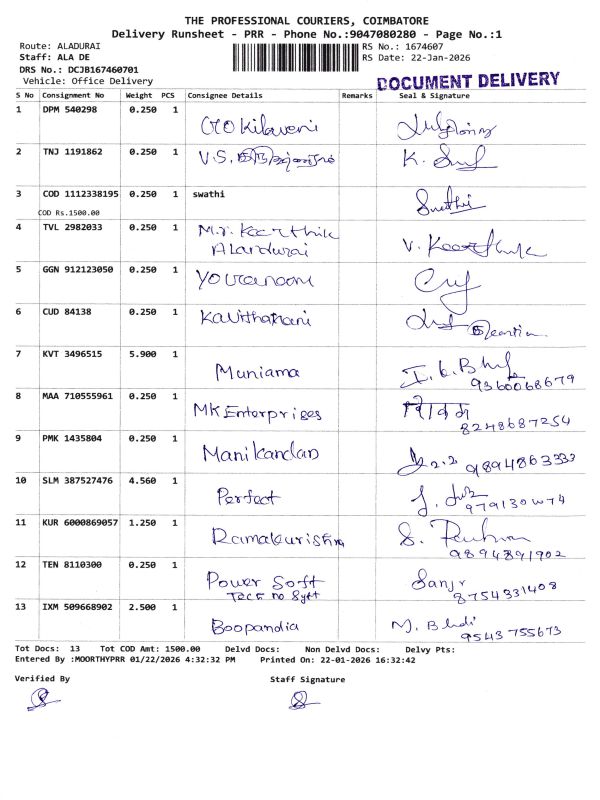 THE PROFESSIONAL COURIERS, COIMBATORE
Delivery Runsheet - PRR - Phone No.:9047080280 - Page No.:1
Route: ALADURAI
RS No.: 1674607
Staff: ALA DE
RS Date: 22-Jan-2026
DRS No.: DCJB167460701
Vehicle: Office Delivery
DOCUMENT DELIVERY
S No Consignment No Weight PCS Consignee Details Remarks Seal & Signature
1 DPM 540298 0.250 1
2 TNJ 1191862 0.250 1 V.S. K.
3 COD 1112338195 0.250 1 swathi Swathi
COD Rs.1500.00
4 TVL 2982033 0.250 1 Mr. Keerthik V. Keerthik
Alandurai
5 GGN 912123050 0.250 1
6 CUD 84138 0.250 1 Kavithamani
7 KVT 3496515 5.900 1 Muniama
9360068679
8 MAA 710555961 0.250 1 MK Enterprises
8248687254
9 PMK 1435804 0.250 1 Manikandan 9894863333
10 SLM 387527476 4.560 1 Perfect
11 KUR 6000869057 1.250 1 S.
9894891902
12 TEN 8110300 0.250 1 Power Soft Sanjr
8754331408
13 IXM 509668902 2.500 1 Boopandia M.
9543 755673
Tot Docs: 13 Tot COD Amt: 1500.00 Delvd Docs: Non Delvd Docs: Delvy Pts:
Entered By :MOORTHYPRR 01/22/2026 4:32:32 PM Printed On: 22-01-2026 16:32:42
Verified By Staff Signature